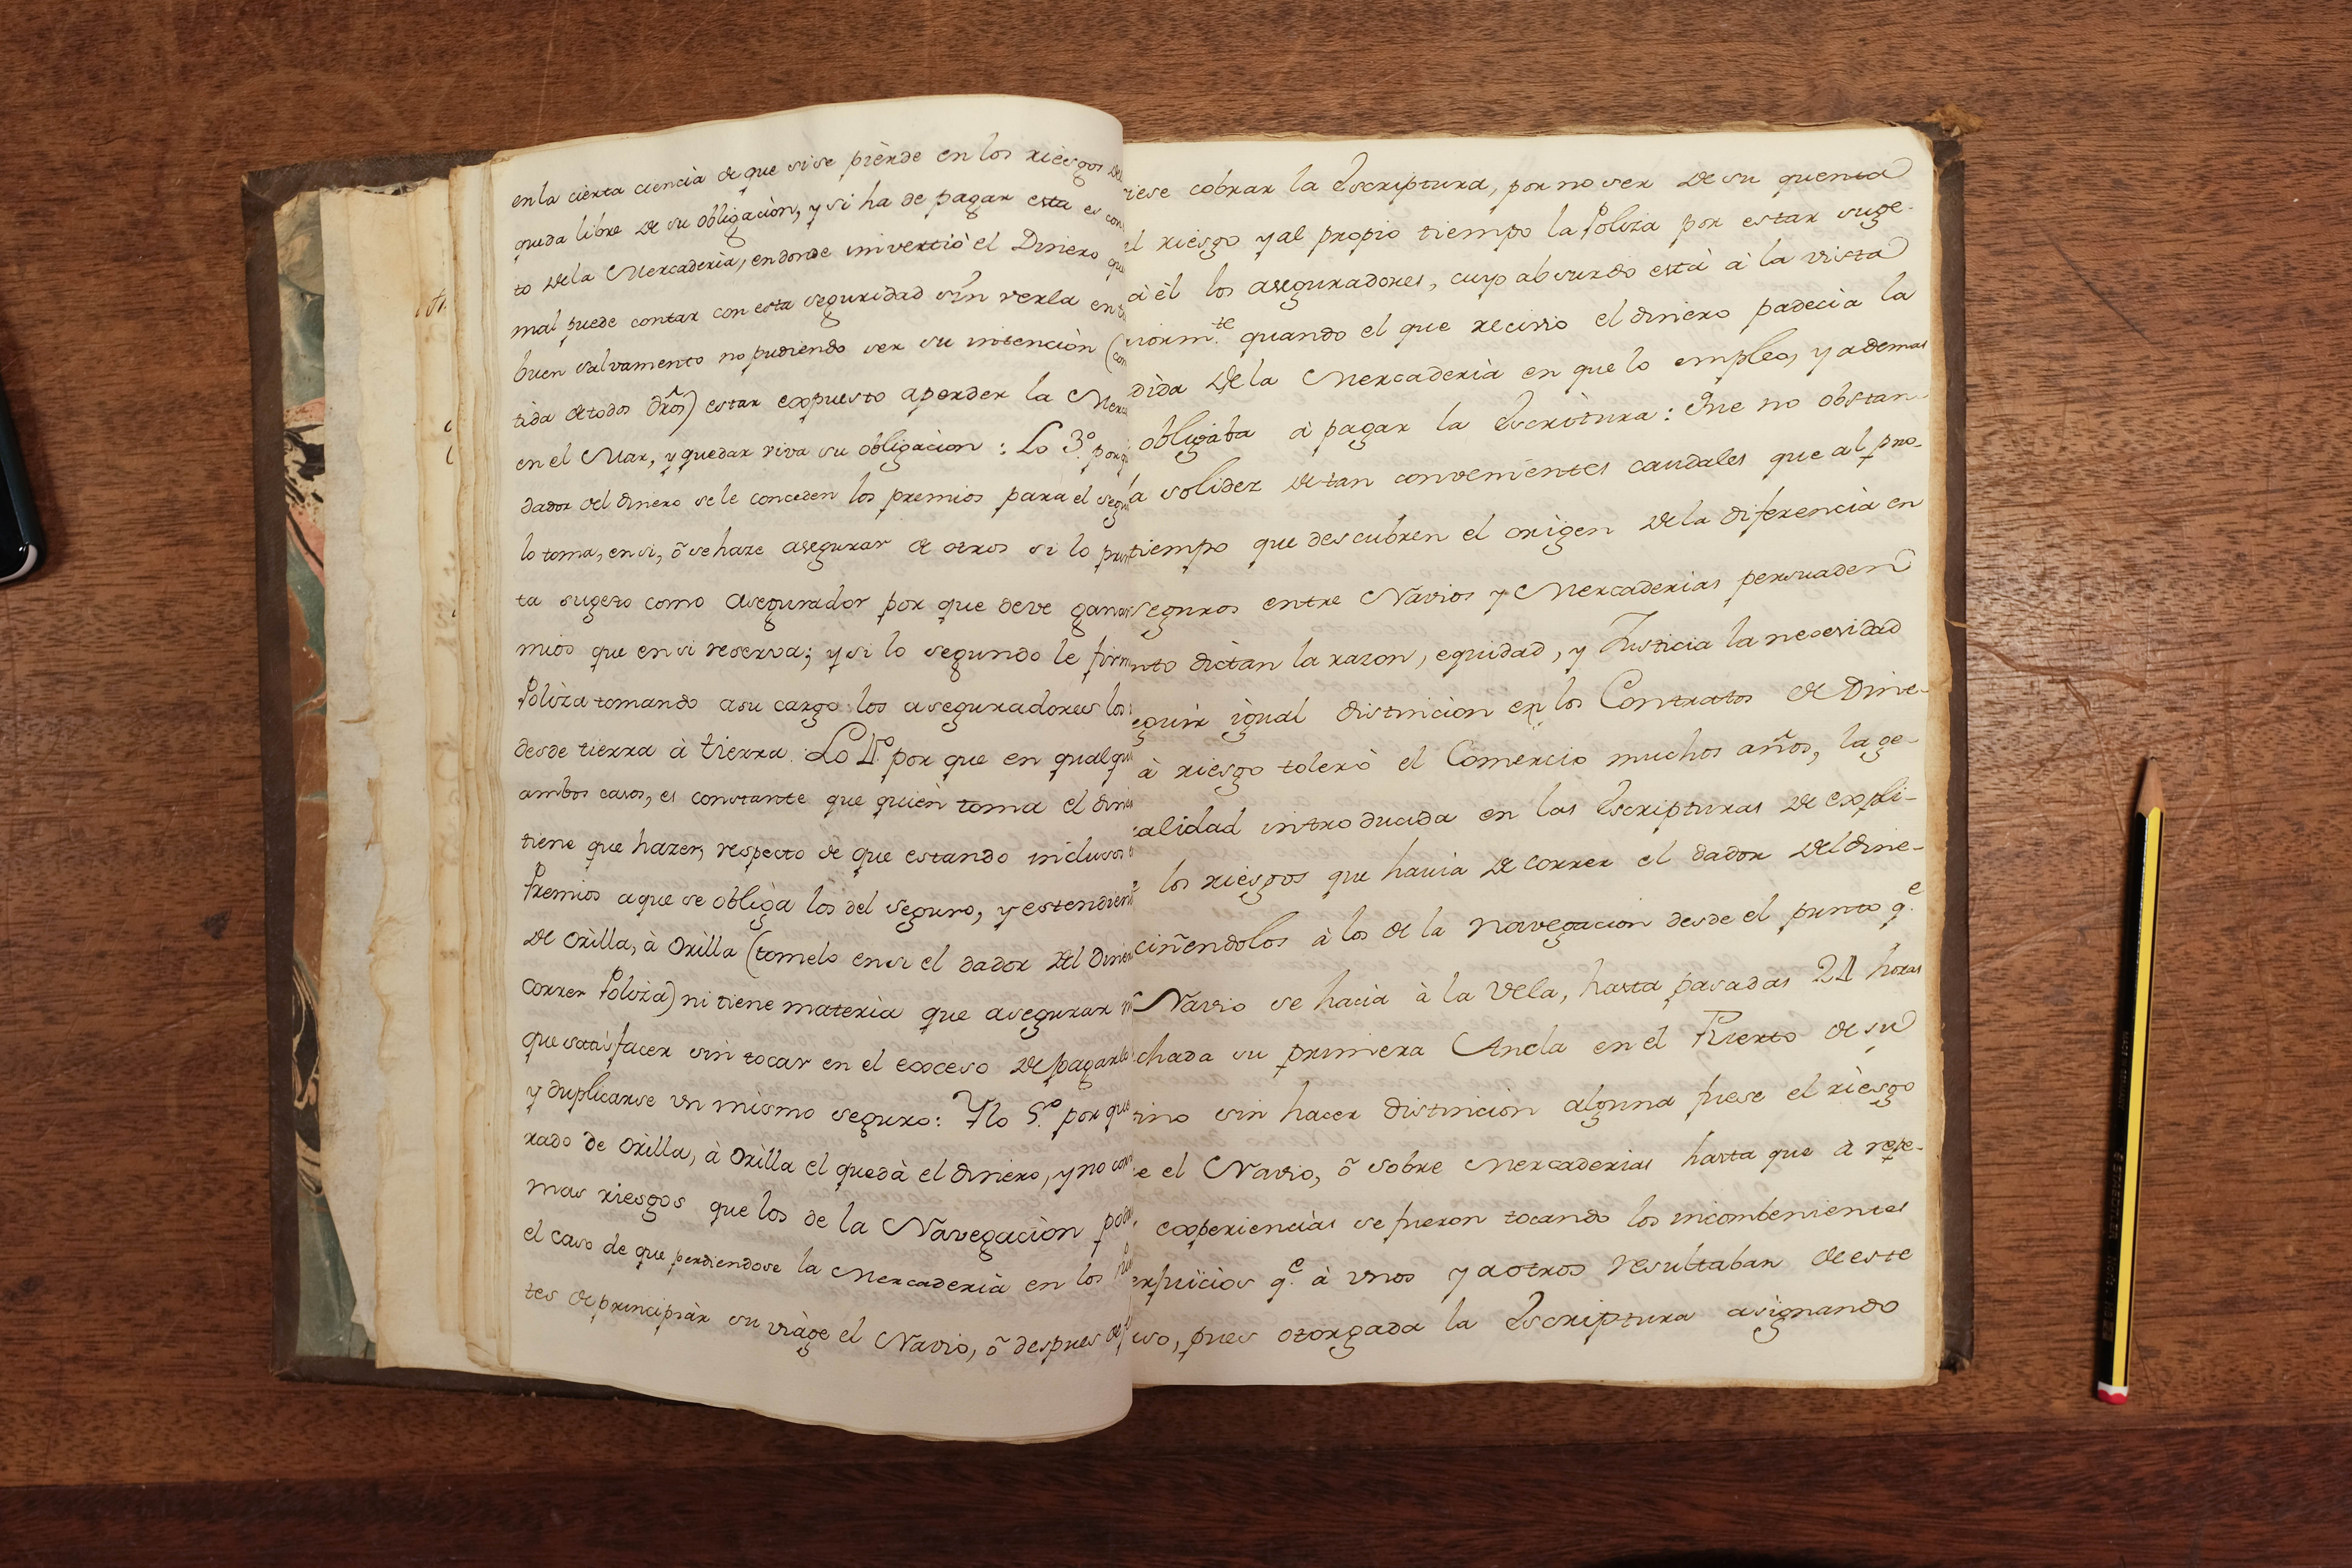 en la cierta ciencia de que si se pièrde en los rièsgos del
queda libre de su obligaciòn, y si ha de pagar esta es con
to dela Mercaderìa, en donde invertiò el Dinero que
mal puede contar con esta seguridad sin verla en
buen salvamento no pudiendo ser su intenciòn (con
tida de todos dros) estar expuesto a perder la Merca
en el Mar, y quedar viva su obligaciòn: Lo 3.º porq
dador del dinero se le conceden los premios para el segu
lo toma, en si, ô se haze asegurar de otros si lo prim
ta sugeto como asegurador por que deve ganar
mios que en si reserva; y si lo segundo le firm
Pòliza tomando a su cargo los aseguradores los
desde tierra à tierra. Lo 4.º por que en qualqui
ambos casos, es constante que quièn toma el dine
tiene que hazer, respecto de que estando inclusos
Premios a que se oblìga los del seguro, y estendien
de orilla, à orilla (tomelo en si el dador del Diner
correr Poliza) ni tiene materìa que asegurar
que satisfacer sin tocar en el exceso de pagarlo
y duplicarse un mismo seguro: Y lo 5.º por que
rado de orilla, à orilla el quedà el dinero, y no cor
mas riesgos que los de la Navegaciòn
el caso de que perdiendose la Mercaderìa en los
tes de principiàr su viàge el Navio, ô despues de
iese cobrar la Escriptura, por no ser de su quenta
el rièsgo y al propio tiempo la Poliza por estar suge-
à èl los aseguradores, cuyo absurdo està à la vista
iorm.te quando el que recivio el dinero padecìa la
dida dela Mercaderìa en que lo empleo, y ademas
obligàba à pagar la Escritura: Que no obstan
a solidez de tan convenientes caudales que al pro-
tiempo que descubren el orìgen dela diferencìa en
seguros entre Navios y Mercaderias persuaden
nto dictan la razon, equidad, y Justicia la necesidad
eguir igual distinciòn en los Contratos de Dine-
à riesgo tolerò el Comercio muchos años, la ge-
alidad introducida en las Escripturas de expli-
los riesgos que havia de correr el dador del dine-
ciñendolos à los de la navegacion desde el punto q.e
Navio se hacìa à la Vela, hasta pasadas 24 horas
chada su primera Ancla en el Puerto de su
tino sin hacer distinciòn alguna fuese el rièsgo
e el Navio, ô sobre Mercaderias hasta que a repe-
experiencias se fueron tocando los incombenientes
erjuicios q.e à unos y a otros resultaban de este
uso, pues otorgada la Escriptura asignando